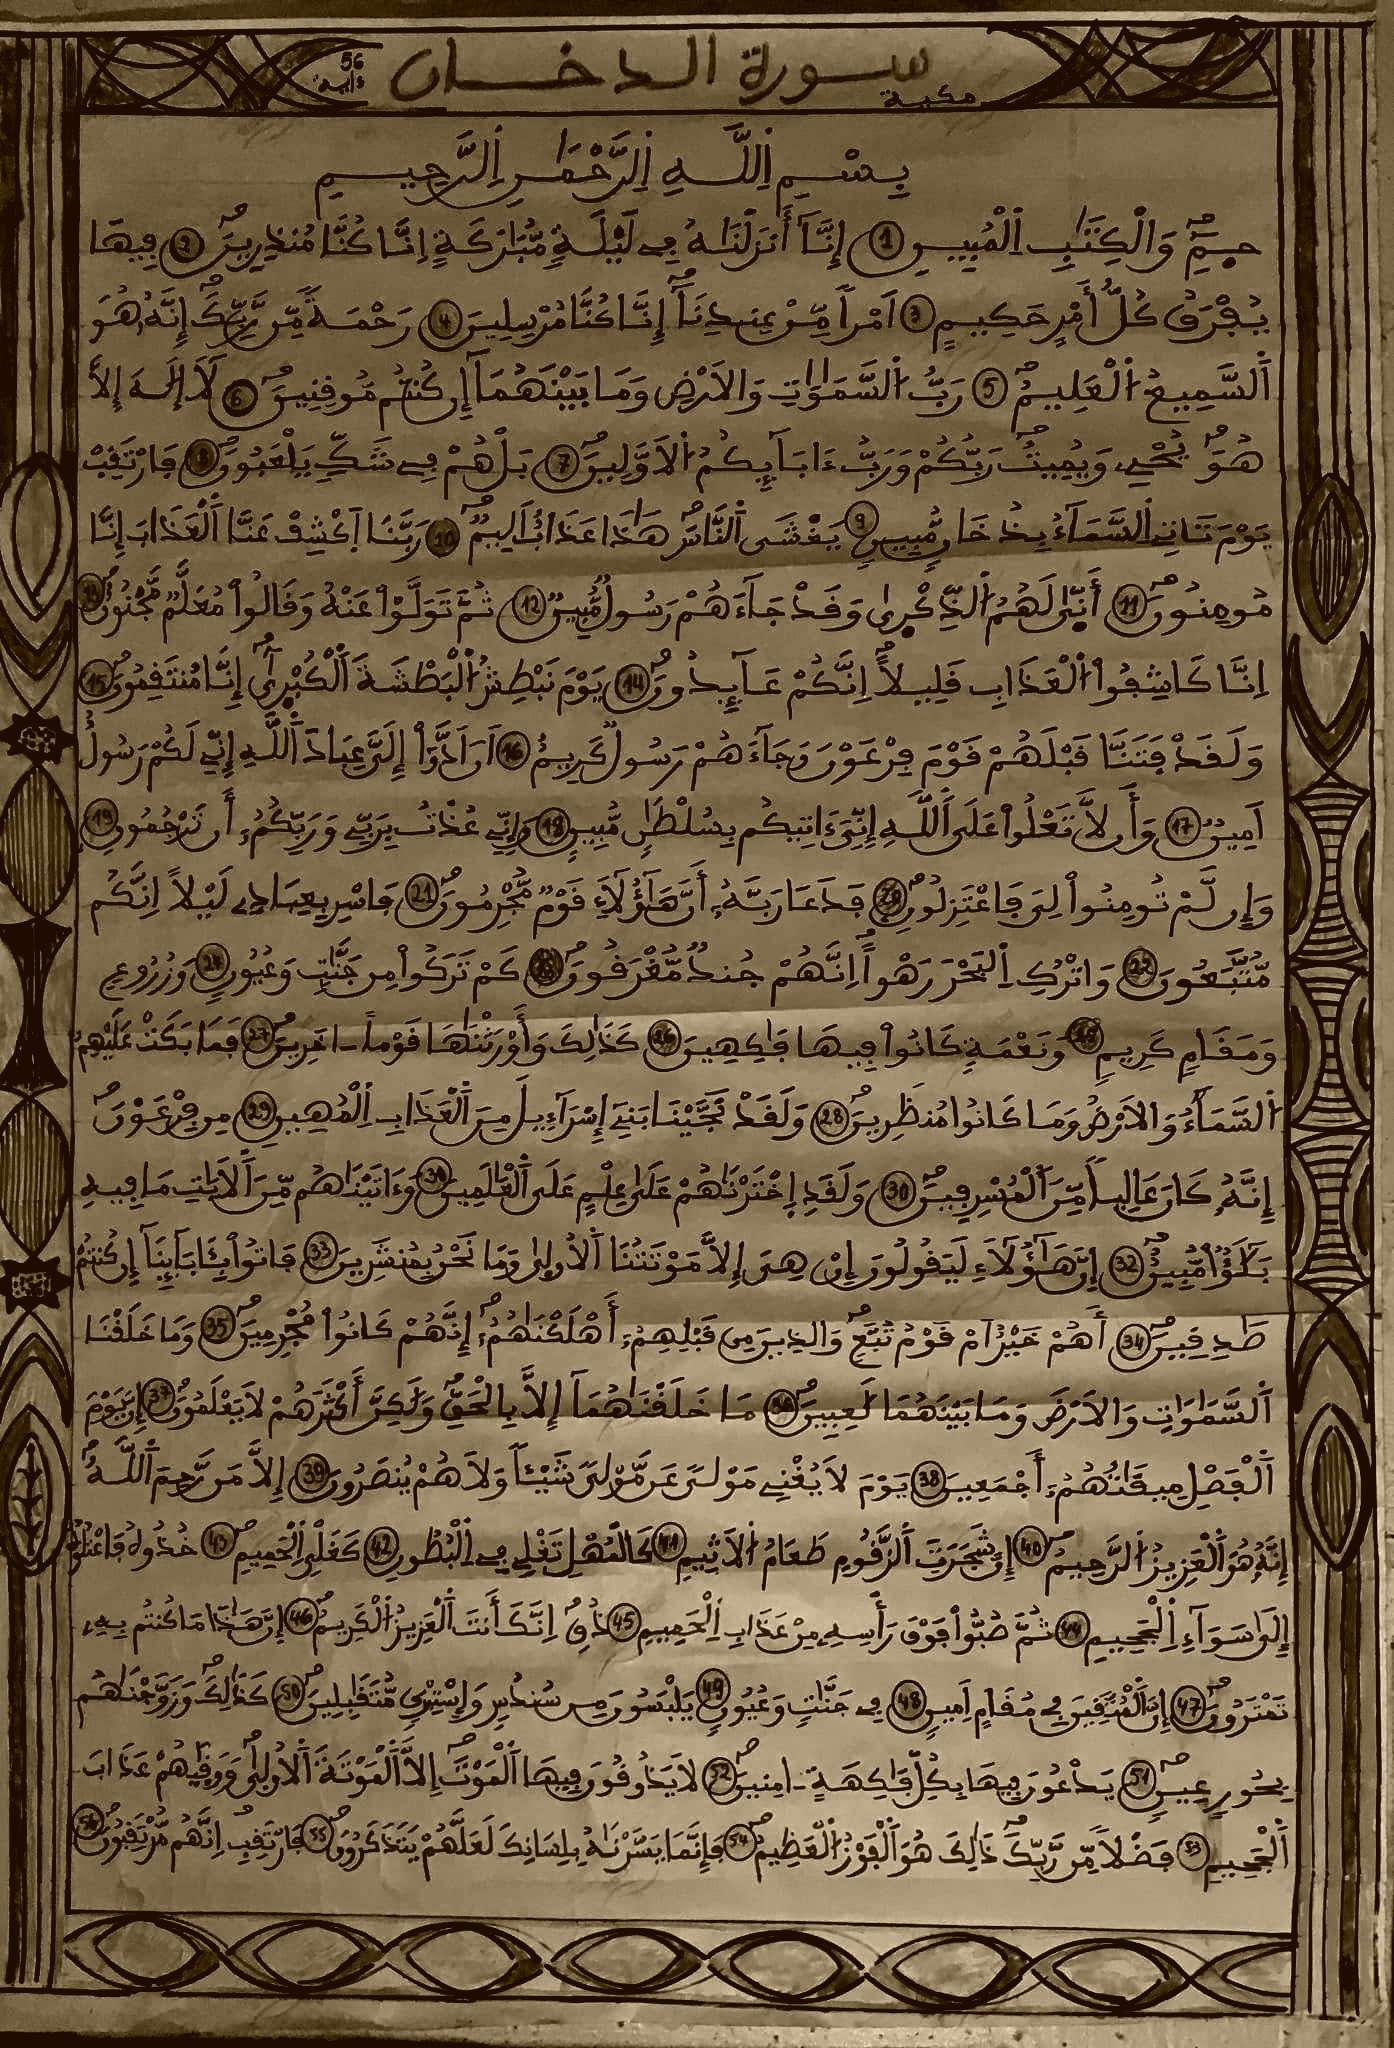 سورة الدخان
مكية
56 ءاية
بِسْمِ اِللَّهِ اِلرَّحْمَٰنِ اِلرَّحِيمِ
حمِٓ وَالْكِتَٰبِ اِلْمُبِينِ 1 إِنَّآ أَنزَلْنَٰهُ فِے لَيْلَةٍ مُّبَٰرَكَةٍ اِنَّا كُنَّا مُنذِرِينَ 2 فِيهَا
يُفْرَقُ كُلُّ أَمْرٍ حَكِيمٍ 3 اَمْراً مِّنْ عِندِنَآ إِنَّا كُنَّا مُرْسِلِينَ 4 رَحْمَةً مِّن رَّبِّكَ إِنَّهُۥ هُوَ
اَلسَّمِيعُ اُلْعَلِيمُ 5 رَبُّ اُلسَّمَٰوَٰتِ وَالَارْضِ وَمَا بَيْنَهُمَآ إِن كُنتُم مُّوقِنِينَ 6 لَآ إِلَٰهَ إِلَّا
هُوَ يُحْيِۦ وَيُمِيتُ رَبُّكُمْ وَرَبُّ ءَابَآئِكُمُ اُلَاوَّلِينَ 7 بَلْ هُمْ فِے شَكٍّ يَلْعَبُونَ 8 فَارْتَقِبْ
يَوْمَ تَاتِے اِلسَّمَآءُ بِدُخَانٍ مُّبِينٍ 9 يَغْشَى اَلنَّاسَ هَٰذَا عَذَابٌ اَلِيمٌ 10 رَبَّنَا اَكْشِفْ عَنَّا اَلْعَذَابَ إِنَّا
مُومِنُونَ 11 أَنّ۪ىٰ لَهُمُ اُلذِّكْر۪ىٰ وَقَدْ جَآءَهُمْ رَسُولٌ مُّبِينٌ 12 ثُمَّ تَوَلَّوْاْ عَنْهُ وَقَالُواْ مُعَلَّمٌ مَّجْنُونٌ 13
اِنَّا كَاشِفُواْ اُلْعَذَابِ قَلِيلاً اِنَّكُمْ عَآئِدُونَ 14 يَوْمَ نَبْطِشُ اُلْبَطْشَةَ اَلْكُبْر۪ىٰٓ إِنَّا مُنتَقِمُونَ 15
وَلَقَدْ فَتَنَّا قَبْلَهُمْ قَوْمَ فِرْعَوْنَ وَجَآءَهُمْ رَسُولٌ كَرِيمٌ 16 اَنَ اَدُّوٓاْ إِلَيَّ عِبَادَ اَللَّهِ إِنِّے لَكُمْ رَسُولٌ
اَمِينٌ 17 وَأَن لَّا تَعْلُواْ عَلَى اَللَّهِ إِنِّيَ ءَاتِيكُم بِسُلْطَٰنٍ مُّبِينٍ 18 وَإِنِّے عُذْتُ بِرَبِّے وَرَبِّكُمُۥٓ أَن تَرْجُمُونِ 19
وَإِن لَّمْ تُومِنُواْ لِيَ فَاعْتَزِلُونِ 20 فَدَعَا رَبَّهُۥٓ أَنَّ هَٰٓؤُلَآءِ قَوْمٌ مُّجْرِمُونَ 21 فَاسْرِ بِعِبَادِے لَيْلاً اِنَّكُم
مُّتَّبَعُونَ 22 وَاتْرُكِ اِلْبَحْرَ رَهْواً اِنَّهُمْ جُندٌ مُّغْرَقُونَ 23 كَمْ تَرَكُواْ مِن جَنَّٰتٍ وَعُيُونٍ 24 وَزُرُوعٍ
وَمَقَامٍ كَرِيمٍ 25 وَنَعْمَةٍ كَانُواْ فِيهَا فَٰكِهِينَ 26 كَذَٰلِكَ وَأَوْرَثْنَٰهَا قَوْماً ـ اخَرِينَ 27 فَمَا بَكَتْ عَلَيْهِمُ
اُلسَّمَآءُ وَالَارْضُ وَمَا كَانُواْ مُنظَرِينَ 28 وَلَقَدْ نَجَّيْنَا بَنِےٓ إِسْرَآءِيلَ مِنَ اَلْعَذَابِ اِلْمُهِينِ 29 مِن فِرْعَوْنَ
إِنَّهُۥ كَانَ عَالِياً مِّنَ اَلْمُسْرِفِينَ 30 وَلَقَدِ اِخْتَرْنَٰهُمْ عَلَىٰ عِلْمٍ عَلَى اَلْعَٰلَمِينَ 31 وَءَاتَيْنَٰهُم مِّنَ اَلَايَٰتِ مَا فِيهِ
بَلَٰٓؤٌاْ مُّبِينٌ 32 اِنَّ هَٰٓؤُلَآءِ لَيَقُولُونَ إِنْ هِيَ إِلَّا مَوْتَتُنَا اَلُاول۪ىٰ وَمَا نَحْنُ بِمُنشَرِينَ 33 فَاتُواْ بِـَٔابَآئِنَآ إِن كُنتُمْ
صَٰدِقِينَ 34 أَهُمْ خَيْرٌ اَمْ قَوْمُ تُبَّعٍ وَالذِينَ مِن قَبْلِهِمُۥٓ أَهْلَكْنَٰهُمُۥٓ إِنَّهُمْ كَانُواْ مُجْرِمِينَ 35 وَمَا خَلَقْنَا
اَلسَّمَٰوَٰتِ وَالَارْضَ وَمَا بَيْنَهُمَا لَٰعِبِينَ 36 مَا خَلَقْنَٰهُمَآ إِلَّا بِالْحَقِّ وَلَٰكِنَّ أَكْثَرَهُمْ لَا يَعْلَمُونَ 37 إِنَّ يَوْمَ
اَلْفَصْلِ مِيقَٰتُهُمُۥٓ أَجْمَعِينَ 38 يَوْمَ لَا يُغْنِے مَوْلىً عَن مَّوْلىً شَيْـٔاً وَلَا هُمْ يُنصَرُونَ 39 إِلَّا مَن رَّحِمَ اَللَّهُ
إِنَّهُۥ هُوَ اَلْعَزِيزُ اُلرَّحِيمُ 40 إِنَّ شَجَرَتَ اَلزَّقُّومِ طَعَامُ اُلَاثِيمِ 41 كَالْمُهْلِ تَغْلِے فِے اِلْبُطُونِ 42 كَغَلْيِ اِلْحَمِيمِ 43 خُذُوهُ فَاعْتُلُوهُ
إِلَىٰ سَوَآءِ اِلْجَحِيمِ 44 ثُمَّ صُبُّواْ فَوْقَ رَأْسِهِۦ مِنْ عَذَابِ اِلْحَمِيمِ 45 ذُقِ اِنَّكَ أَنتَ اَلْعَزِيزُ اُلْكَرِيمُ 46 إِنَّ هَٰذَا مَا كُنتُم بِهِۦ
تَمْتَرُونَ 47 إِنَّ اَلْمُتَّقِينَ فِے مُقَامٍ اَمِينٍ 48 فِے جَنَّٰتٍ وَعُيُونٍ 49 يَلْبَسُونَ مِن سُندُسٍ وَإِسْتَبْرَقٍ مُّتَقَٰبِلِينَ 50 كَذَٰلِكَ وَزَوَّجْنَٰهُم
بِحُورٍ عِينٍ 51 يَدْعُونَ فِيهَا بِكُلِّ فَٰكِهَةٍ ـ امِنِينَ 52 لَا يَذُوقُونَ فِيهَا اَلْمَوْتَ إِلَّا اَلْمَوْتَةَ اَلُاول۪ىٰ وَوَق۪ىٰهُمْ عَذَابَ
اَلْجَحِيمِ 53 فَضْلاً مِّن رَّبِّكَ ذَٰلِكَ هُوَ اَلْفَوْزُ اُلْعَظِيمُ 54 فَإِنَّمَا يَسَّرْنَٰهُ بِلِسَانِكَ لَعَلَّهُمْ يَتَذَكَّرُونَ 55 فَارْتَقِبِ اِنَّهُم مُّرْتَقِبُونَ 56